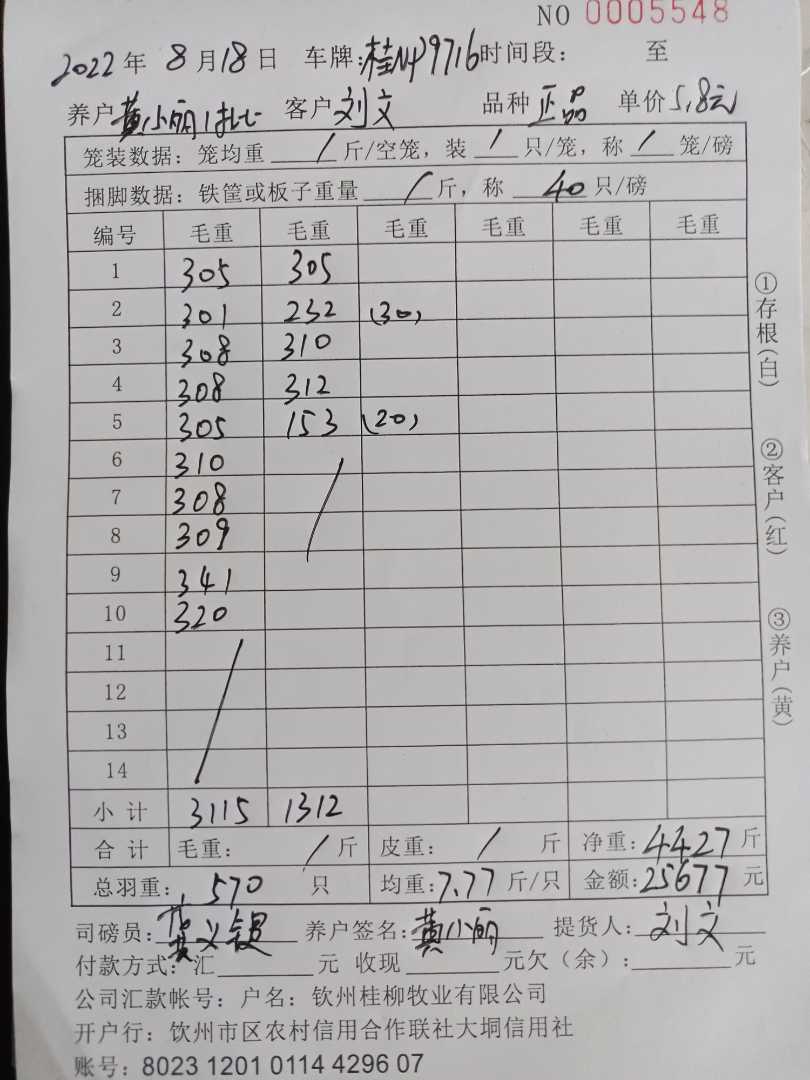 NO 0005548
2022年 8月18日 车牌:桂N79716时间段: 至
养户黄小丽 客户刘文 品种正品 单价5.8元
笼装数据:笼均重 / 斤/空笼,装 / 只/笼,称 / 笼/磅
捆脚数据:铁筐或板子重量 / 斤,称 40 只/磅
编号 毛重 毛重 毛重 毛重 毛重 毛重
1 305 305
2 301 232 (30)
3 308 310
4 308 312
5 305 153 (20)
6 310
7 308
8 309
9 341
10 320
11
12
13
14
小计 3115 1312
合计 毛重: / 斤 皮重: / 斤 净重:4427斤
总羽重: 570 只 均重:7.77斤/只 金额:25677元
司磅员: 养户签名:黄小丽 提货人:刘文
付款方式:汇 元 收现 元欠(余): 元
公司汇款帐号:户名:钦州桂柳牧业有限公司
开户行:饮州市区农村信用合作联社大垌信用社
账号:8023 1201 0114 4296 07
①存根(白)
②客户(红)
③养户(黄)